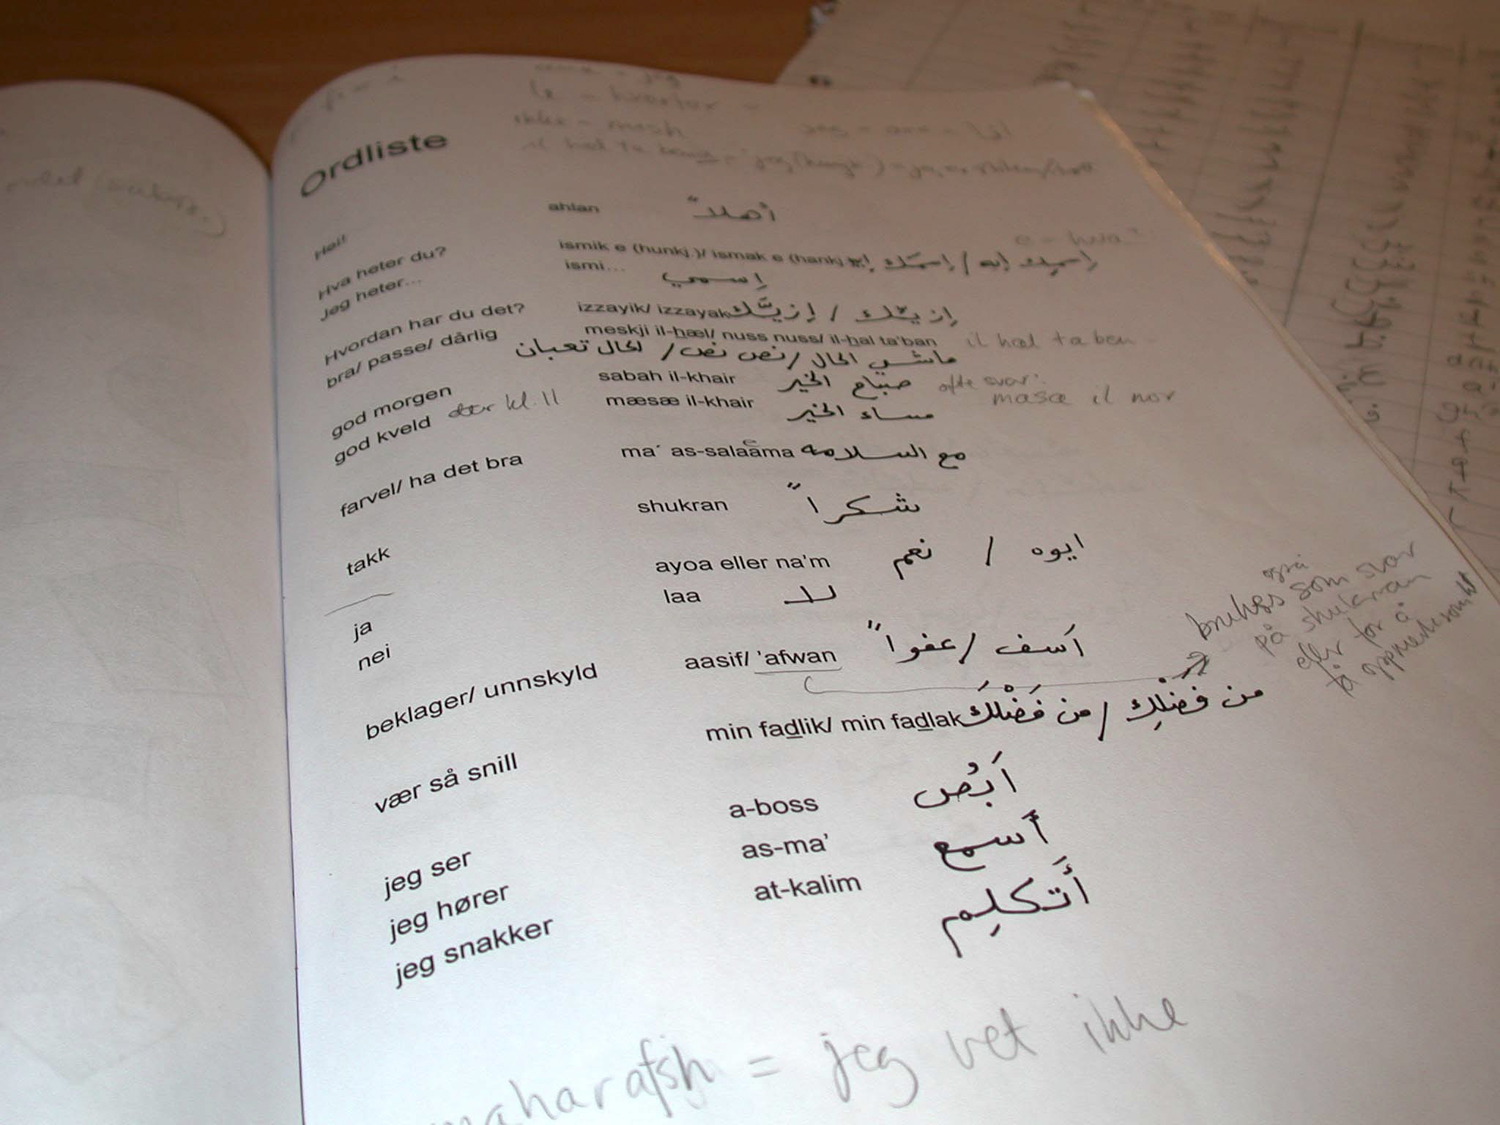 Ordliste
ikke - mesh
Hei! ahlan أهلاً
Hva heter du? ismik e (hunkj.)/ ismak e (hankj إسمك إيه / إسمك
Jeg heter... ismi... إسمي
Hvordan har du det? izzayik/ izzayak إزيَّك / إزيك
bra/ passe/ dårlig meskji il-hæl/ nuss nuss/ il-hal ta'ban il hal ta ben
ماشي الحال / نص نص / الحال تعبان
god morgen sabah il-khair صباح الخير ofte svar:
god kveld etter kl. 11 mæsæ il-khair مساء الخير masæ il nor
farvel/ ha det bra ma´ as-salaama مع السلامه
takk shukran شكراً
ja ayoa eller na'm ايوه / نعم
nei laa لا
beklager/ unnskyld aasif/ 'afwan آسف / عفواً
også
brukes som svar
på shukran
eller for å
få oppmerksomhet
vær så snill min fadlik/ min fadlak من فَضْلَك / من فضلِك
jeg ser a-boss اَبُص
jeg hører as-ma' أسمع
jeg snakker at-kalim أَتكلِم
maharafsh = jeg vet ikke